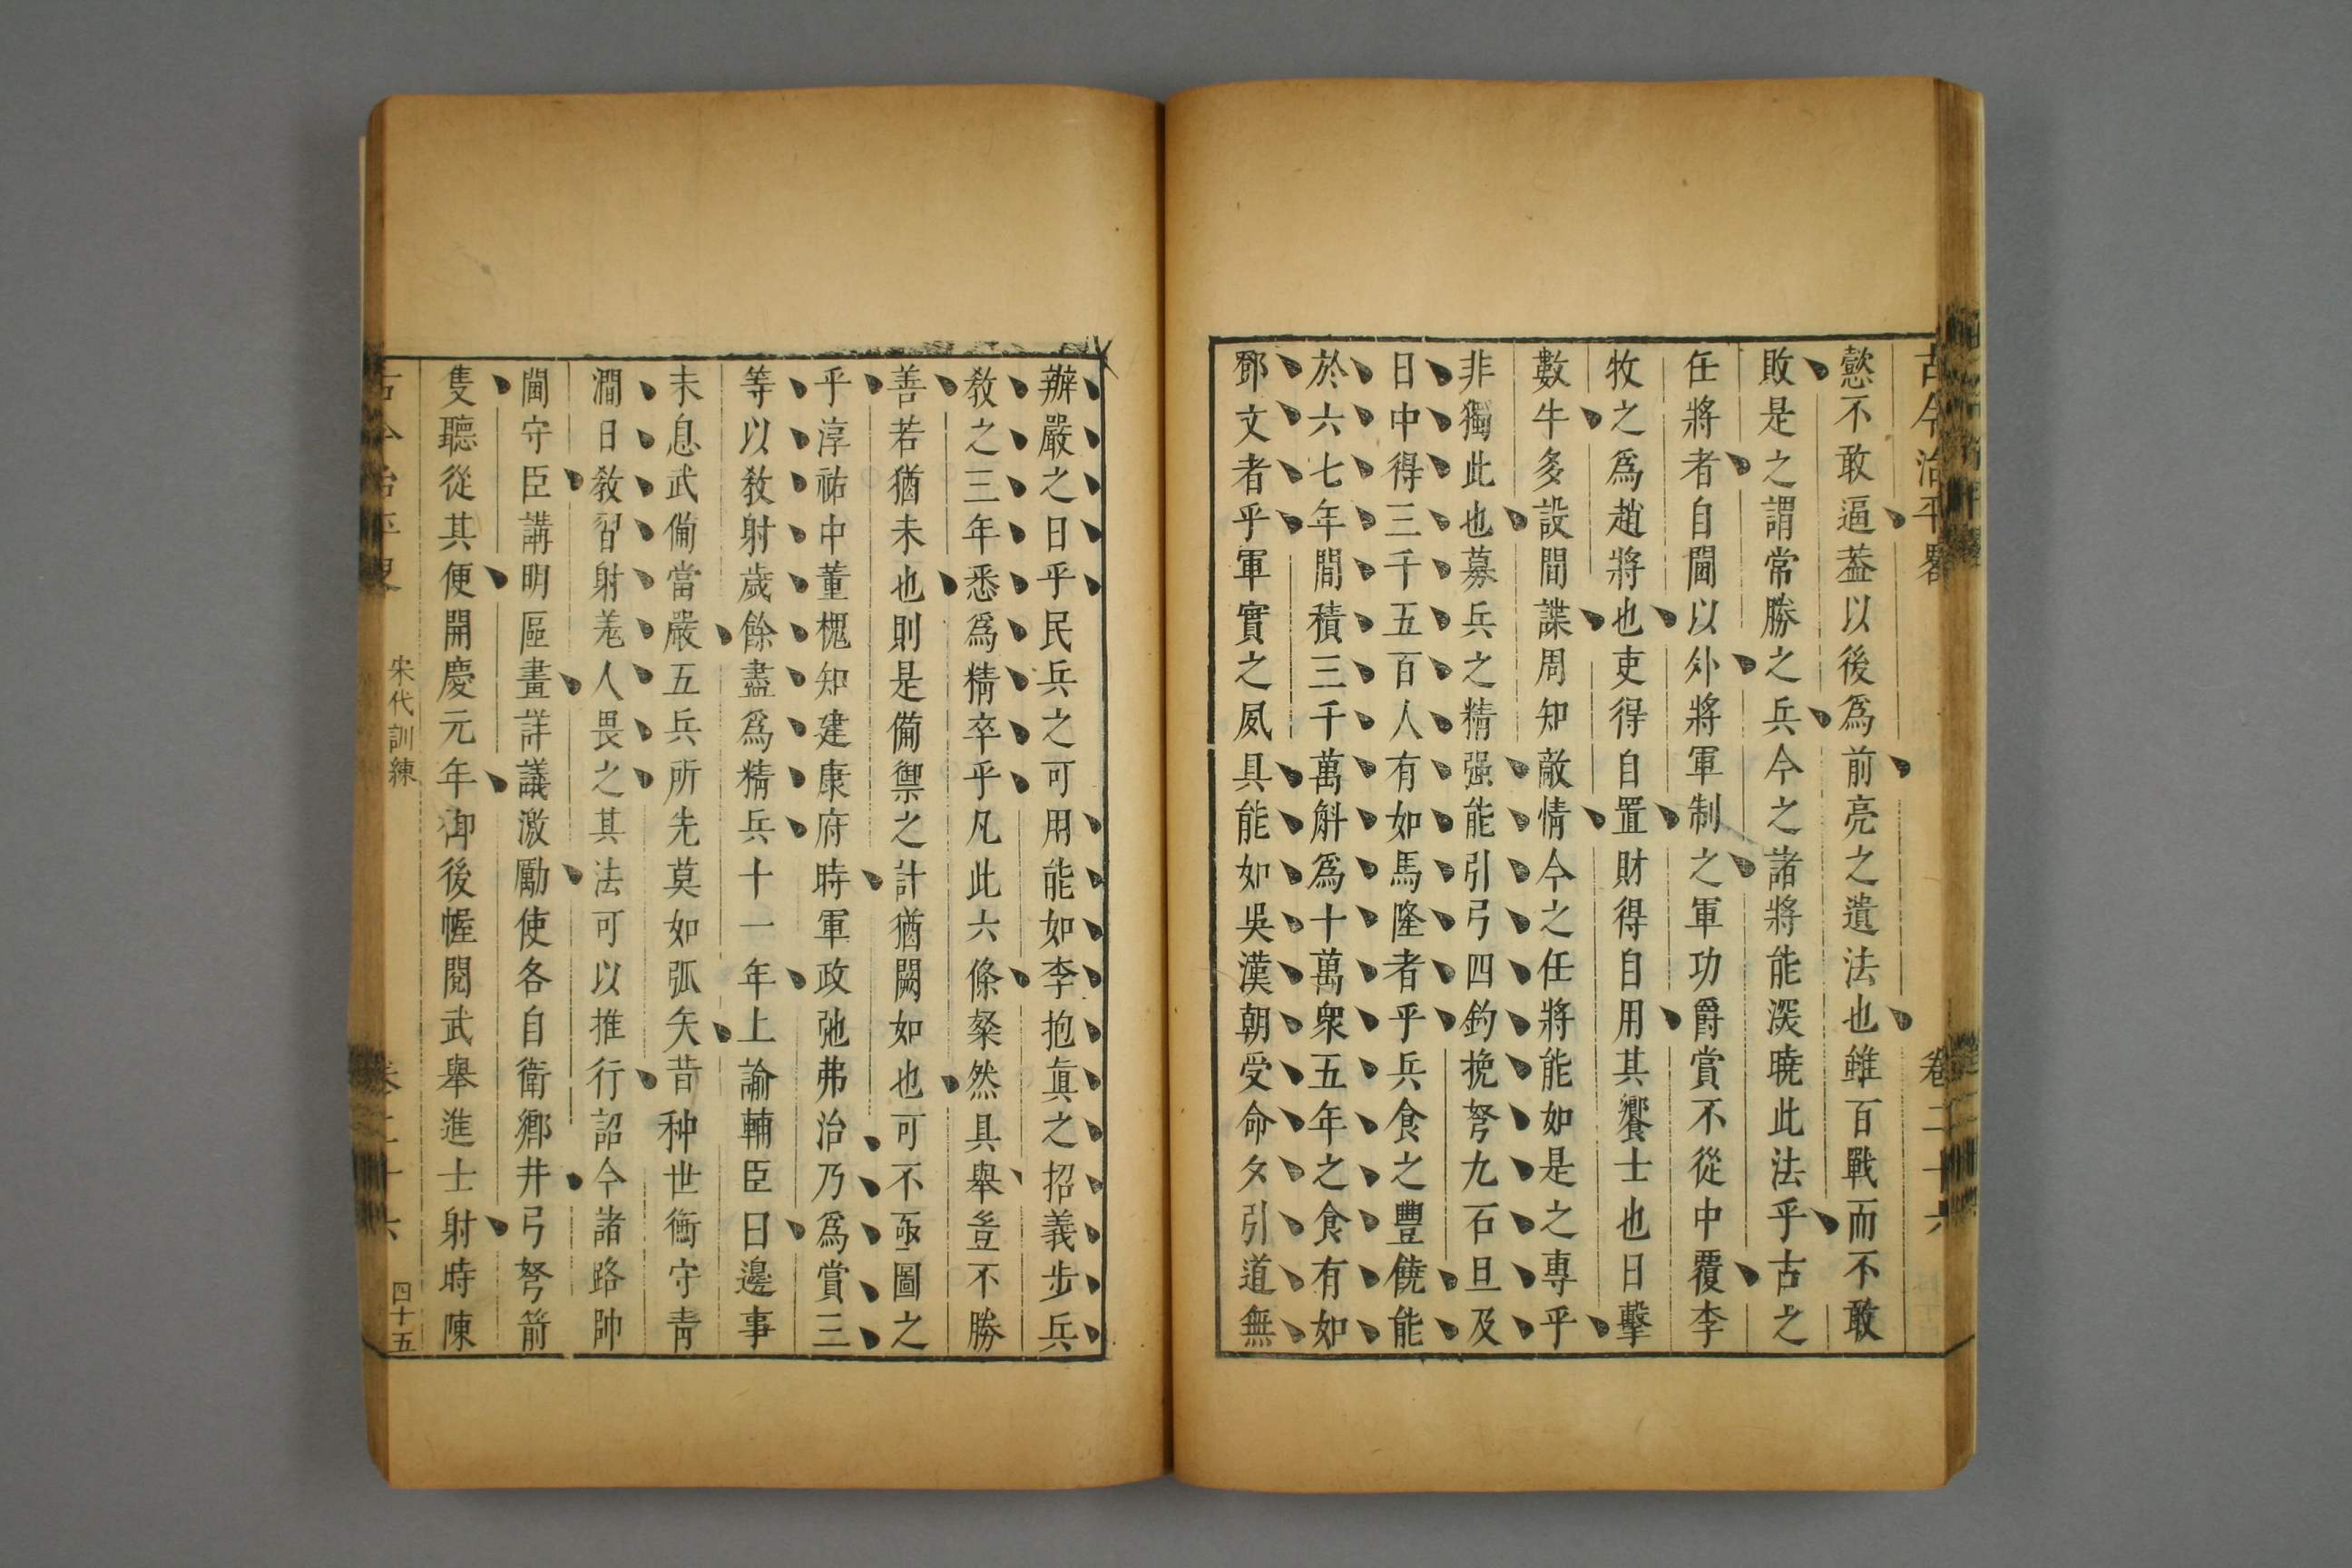 古今治平畧 卷二十六
懲不敢逼葢以後爲前亮之遺法也雖百戰而不敢
敗是之謂常勝之兵今之諸將能深曉此法乎古之
任將者自閫以外將軍制之軍功爵賞不從中覆李
牧之爲趙將也吏得自置財得自用其饗士也日擊
數牛多設間諜周知敵情今之任將能如是之專乎
非獨此也募兵之精强能引弓四鈞挽弩九石旦及
日中得三千五百人有如馬隆者乎兵食之豐饒能
於六七年間積三千萬斛爲十萬衆五年之食有如
鄧艾者乎軍實之夙具能如吳漢朝受命夕引道無
辦嚴之日乎民兵之可用能如李抱眞之招義步兵
敎之三年悉爲精卒乎凡此六條粲然具舉豈不勝
善若猶未也則是備禦之計猶闕如也可不亟圖之
乎淳祐中董槐知建康府時軍政弛弗治乃爲賞三
等以敎射歲餘盡爲精兵十一年上諭輔臣曰邊事
未息武備當嚴五兵所先莫如弧矢昔种世衡守靑
澗日敎習射羌人畏之其法可以推行詔今諸路帥
閫守臣講明區畫詳議激勵使各自衛鄕井弓弩箭
隻聽從其便開慶元年御後幄閱武舉進士射時陳
古今治平畧 宋代訓練 卷二十六 四十五